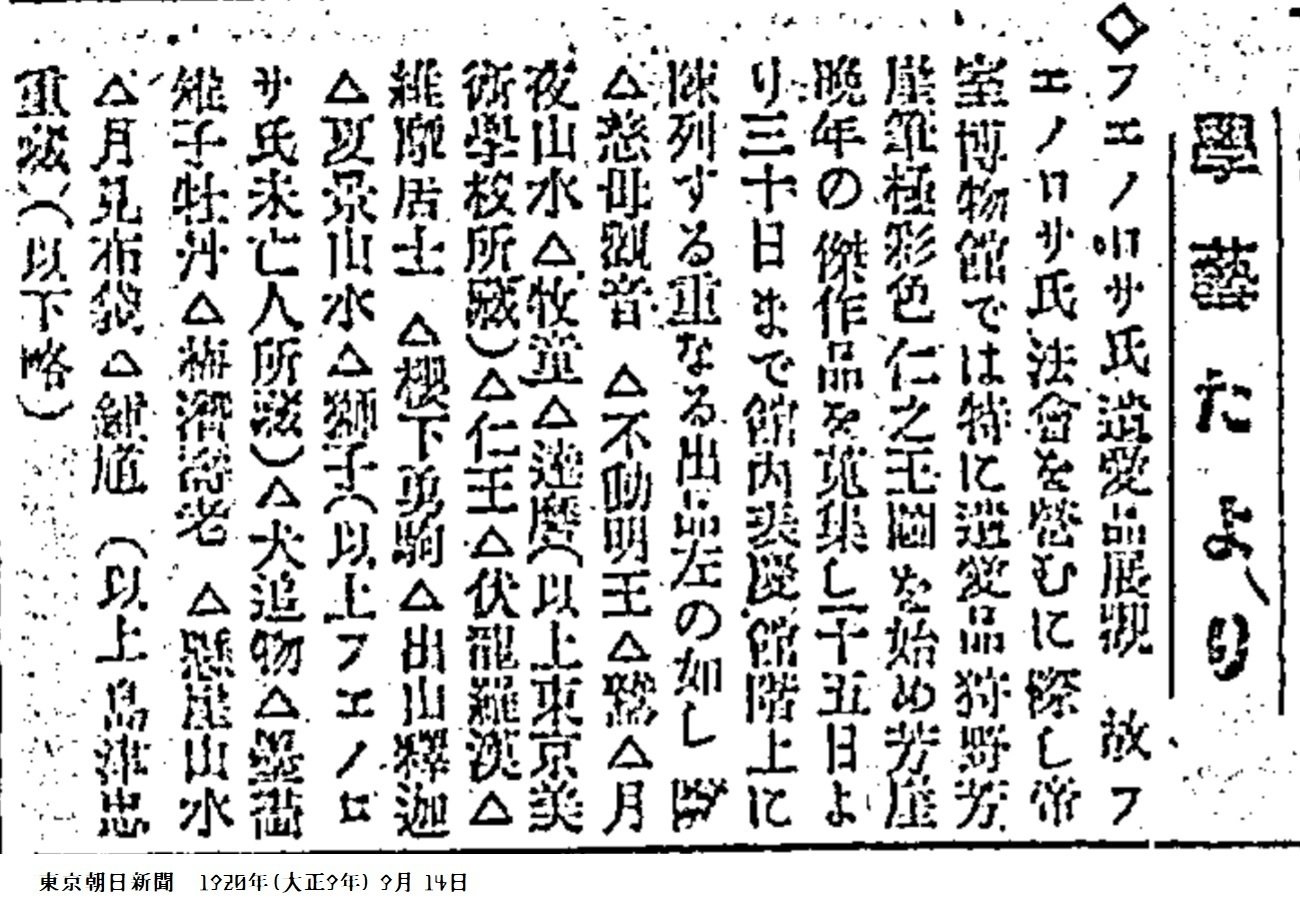 學藝たより
◇フエノロサ氏遺愛品展觀　故フ
エノロサ氏法會を營むに際し帝
室博物館では特に遺愛品狩野芳
崖筆極彩色仁之王圖を始め芳崖
晩年の傑作品を蒐集し二十五日よ
り三十日まで館内表慶館階上に
陳列する重なる出品左の如し
△慈母觀音　△不動明王△鷲△月
夜山水△牧童△達磨(以上東京美
術學校所藏)△仁王△伏龍羅漢△
維摩居士　△櫻下勇駒△出山釋迦
△夏景山水△獅子(以上フエノロ
サ氏未亡人所藏)△犬追物△
雉子牡丹△梅壽老　△懸崖山水
△月見布袋△鍾馗　(以上島津忠
重藏)(以下略)
東京朝日新聞　1920年(大正9年) 9月 14日